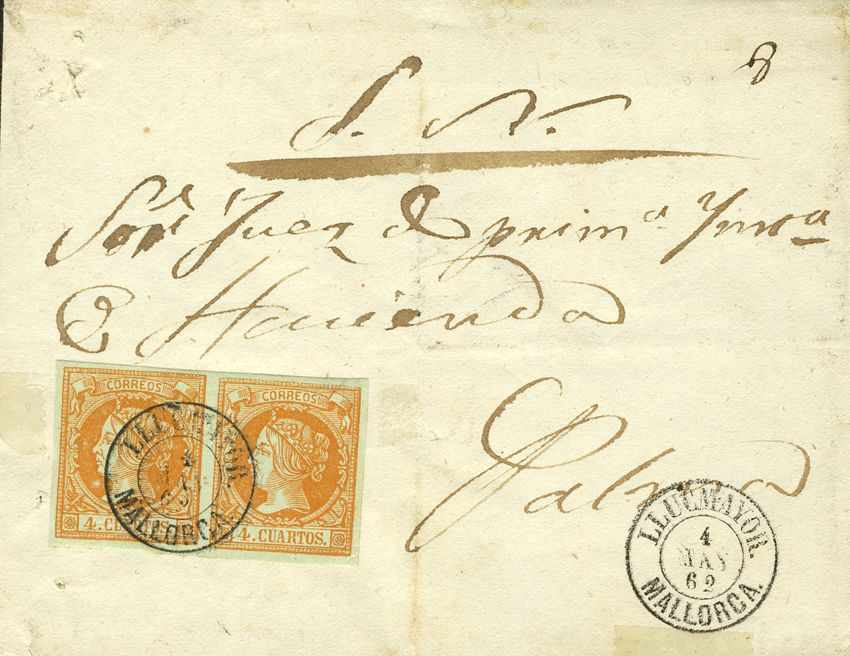 8
S. N.
Sor. Juez de prima. Ynsa
de Hacienda
Palma
CORREOS CORREOS
4. CUARTOS.
LLUCMAYOR.
4
MAY
62
MALLORCA.
LLUCMAYOR.
4
MAY
62
MALLORCA.